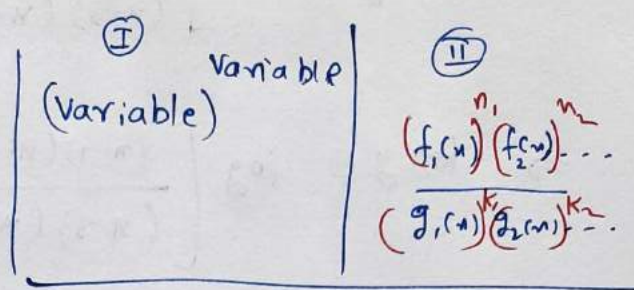 I
(variable)^variable
II
(f₁(x))^n₁ (f₂(x))^n₂ ...
(g₁(x))^k₁ (g₂(x))^k₂ ...